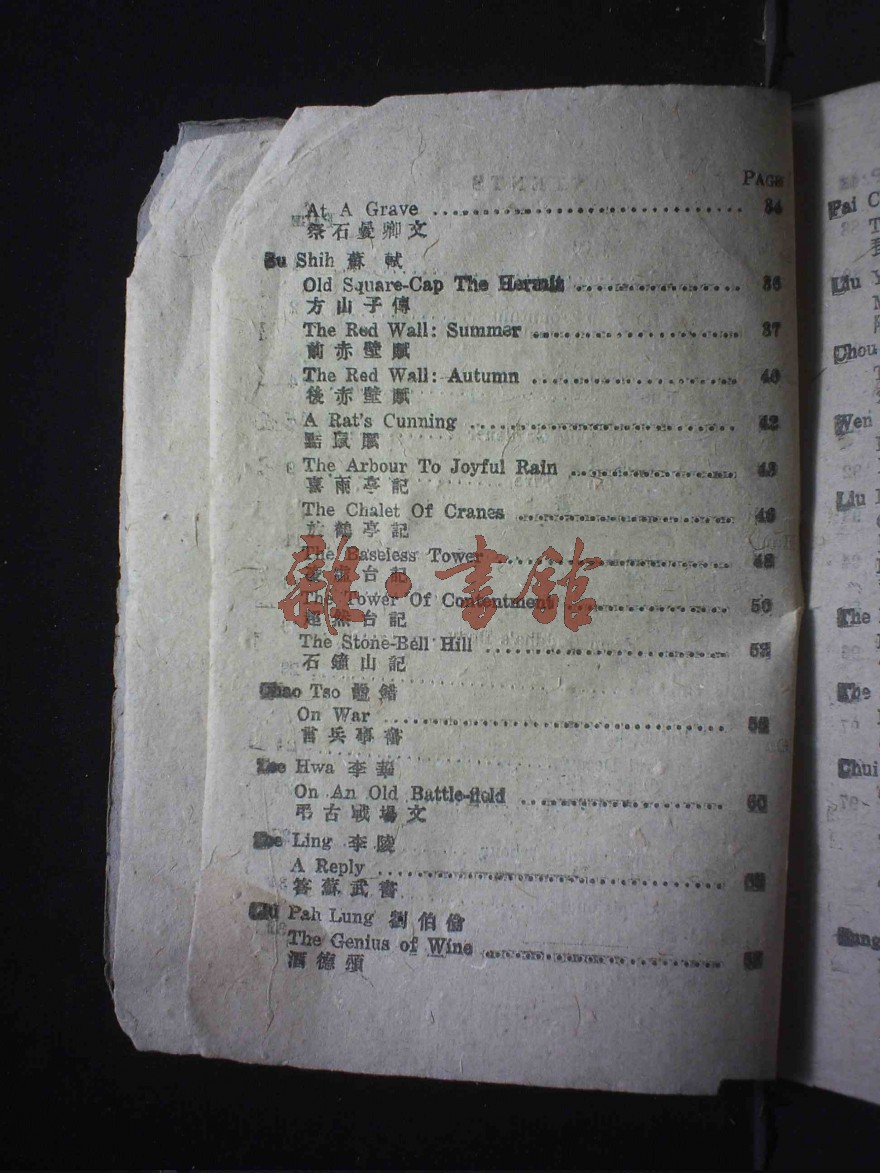 PAGE
At A Grave 34
祭石曼卿文
Su Shih 蘇軾
Old Square-Cap The Hermit 36
方山子傳
The Red Wall: Summer 37
前赤壁賦
The Red Wall: Autumn 40
後赤壁賦
A Rat's Cunning 42
黠鼠賦
The Arbour To Joyful Rain 43
喜雨亭記
The Chalet Of Cranes
放鶴亭記
The Baseless Tower 48
凌虛台記
The Tower Of Contentment 50
超然台記
The Stone-Bell Hill 52
石鐘山記
Chao Tso 鼂錯
On War
言兵事書
Lee Hwa 李華
On An Old Battle-field 60
弔古戰場文
Lee Ling 李陵
A Reply
答蘇武書
Liu Pah Lung 劉伯倫
The Genius of Wine
酒德頌
雜·書館
Pai C
Liu Y
Chou
Wen
Liu
The
The
Chui
Sung